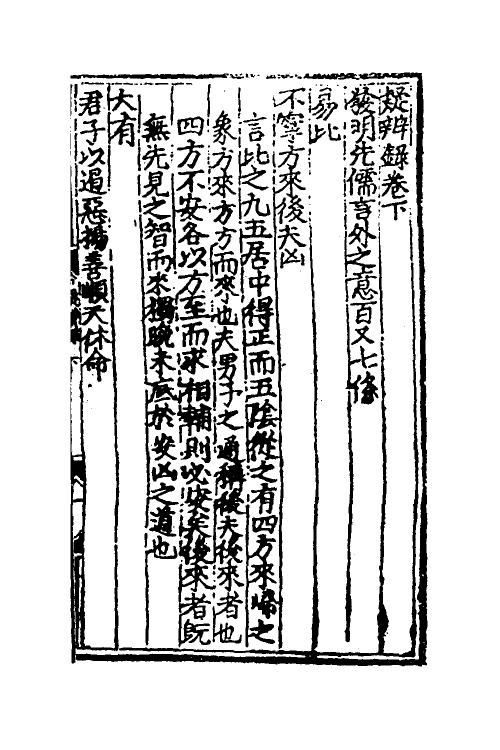 疑辨錄卷下
發明先儒言外之意百又七條
易比
不寧方來後夫凶
言比之九五居中得正而五陰從之有四方來歸之
象方來方方而來也夫男子之通稱後夫後來者也
四方不安各以方至而求相輔則必安矣後來者既
無先見之智而來獨晚未底於安凶之道也
大有
君子以遏惡揚善順天休命